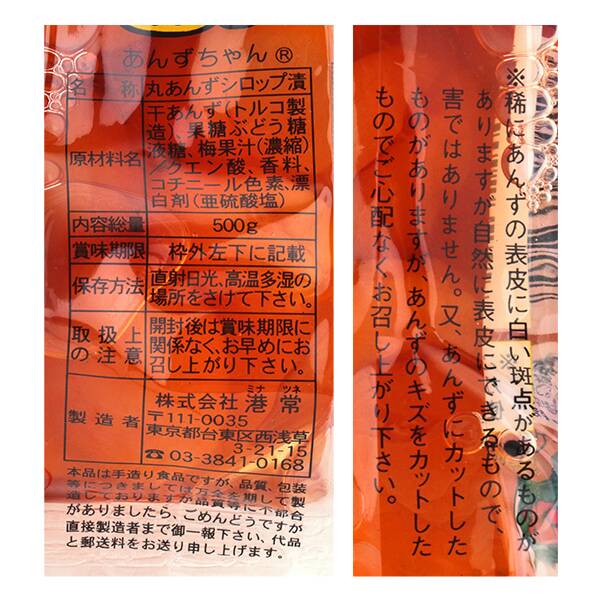 あんずちゃん®
名称 丸あんずシロップ漬
原材料名 干あんず(トルコ製
造)、果糖ぶどう糖
液糖、梅果汁(濃縮)
/クエン酸、香料、
コチニール色素、漂
白剤(亜硫酸塩)
内容総量 500g
賞味期限 枠外左下に記載
保存方法 直射日光、高温多湿の
場所をさけて下さい。
取扱上の注意 開封後は賞味期限に
関係なく、お早めにお
召し上がり下さい。
製造者 株式会社 港常
ミナ ツネ
〒111-0035
東京都台東区西浅草
3-21-15
☎ 03-3841-0168
本品は手造り食品ですが、品質、包装
等につきましては万全を期して製
造しておりますが品質等に不都合
がありましたら、ごめんどうですが
直接製造者まで御一報下さい、代品
と郵送料をお送り申し上げます。
※稀にあんずの表皮に白い斑点があるものが
ありますが自然に表皮にできるもので、
害ではありません。又、あんずにカットした
ものがありますが、あんずのキズをカットした
ものでご心配なくお召し上がり下さい。